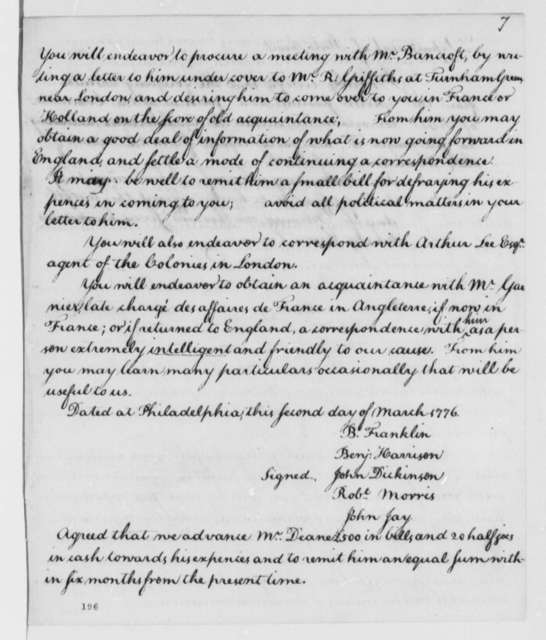 7
You will endeavor to procure a meeting with Mr. Bancroft, by wri-
-ting a letter to him under cover to Mr. R. Griffiths at Turnham Green
near London, and desiring him to come over to you in France or
Holland on the score of old acquaintance; From him you may
obtain a good deal of information of what is now going forward in
England, and settle a mode of continuing a correspondence.
It may be well to remit him a small bill for defraying his ex-
pences in coming to you; avoid all political matters in your
letter to him.
You will also endeavor to correspond with Arthur Lee Esqr.
agent of the Colonies in London.
You will endeavor to obtain an acquaintance with Mr. Gar-
nier, late chargé des affaires de France in Angleterre, if now in
France; or if returned to England, a correspondence with him as a per-
son extremely intelligent and friendly to our cause. From him
you may learn many particulars occasionally that will be
useful to us.
Dated at Philadelphia, this second day of March 1776.
B. Franklin
Benj. Harrison
Signed. John Dickinson
Robt. Morris
John Jay
Agreed that we advance Mr. Deane £500 in bills, and 20 half joes
in cash towards his expences and to remit him an equal sum with-
in six months from the present time.
196